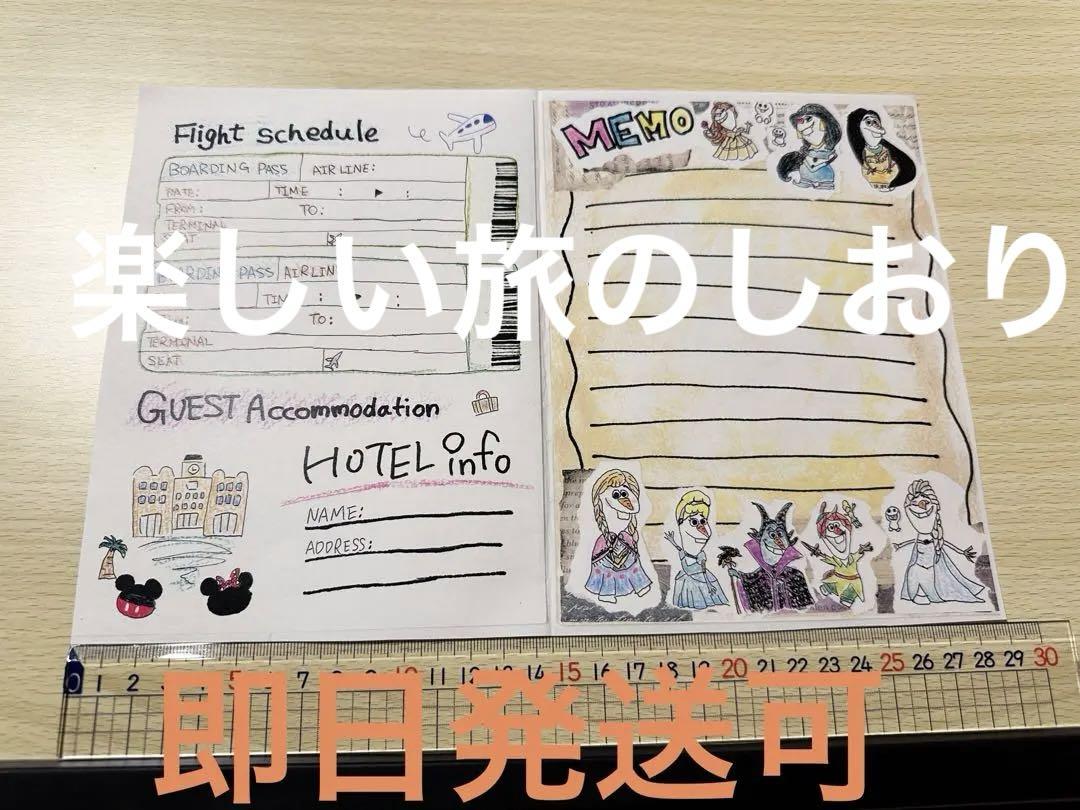 Flight schedule
BOARDING PASS AIRLINE:
DATE: TIME : ▶ :
FROM: TO:
TERMINAL
SEAT
BOARDING PASS AIRLIN
TIM : ▶ :
TO:
TERMINAL
SEAT
GUEST Accommodation
HOTEL info
NAME:
ADDRESS:
MEMO
楽しい旅のしおり
0 1 2 5 7 10 11 12 13 14 15 16 17 18 19 20 21 22 23 24 25 26 27 28 29 30
即日発送可